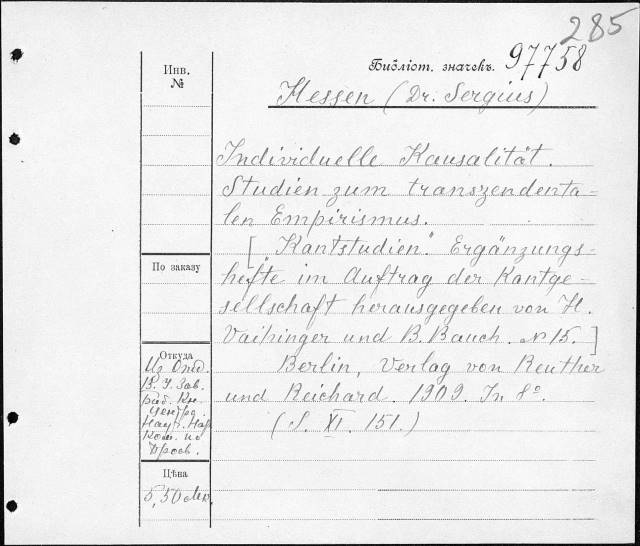 285
Библіот. значекъ. 97758
Инв.
№
Hessen (Dr. Sergius)
Individuelle Kausalität.
Studien zum transzendenta-
len Empirismus.
["Kantstudien". Ergänzungs-
hefte im Auftrag der Kantge-
sellschaft herausgegeben von H.
Vaihinger und B. Bauch. № 15.]
Berlin, Verlag von Reuther
und Reichard. 1909. In 8º.
(S. XI. 151.)
По заказу
Откуда
Из Отд.
В. У. Зав.
Кн.
Центр.
Науч. Нар.
Ком. по
Просв.
Цѣна
5,50 Мк.